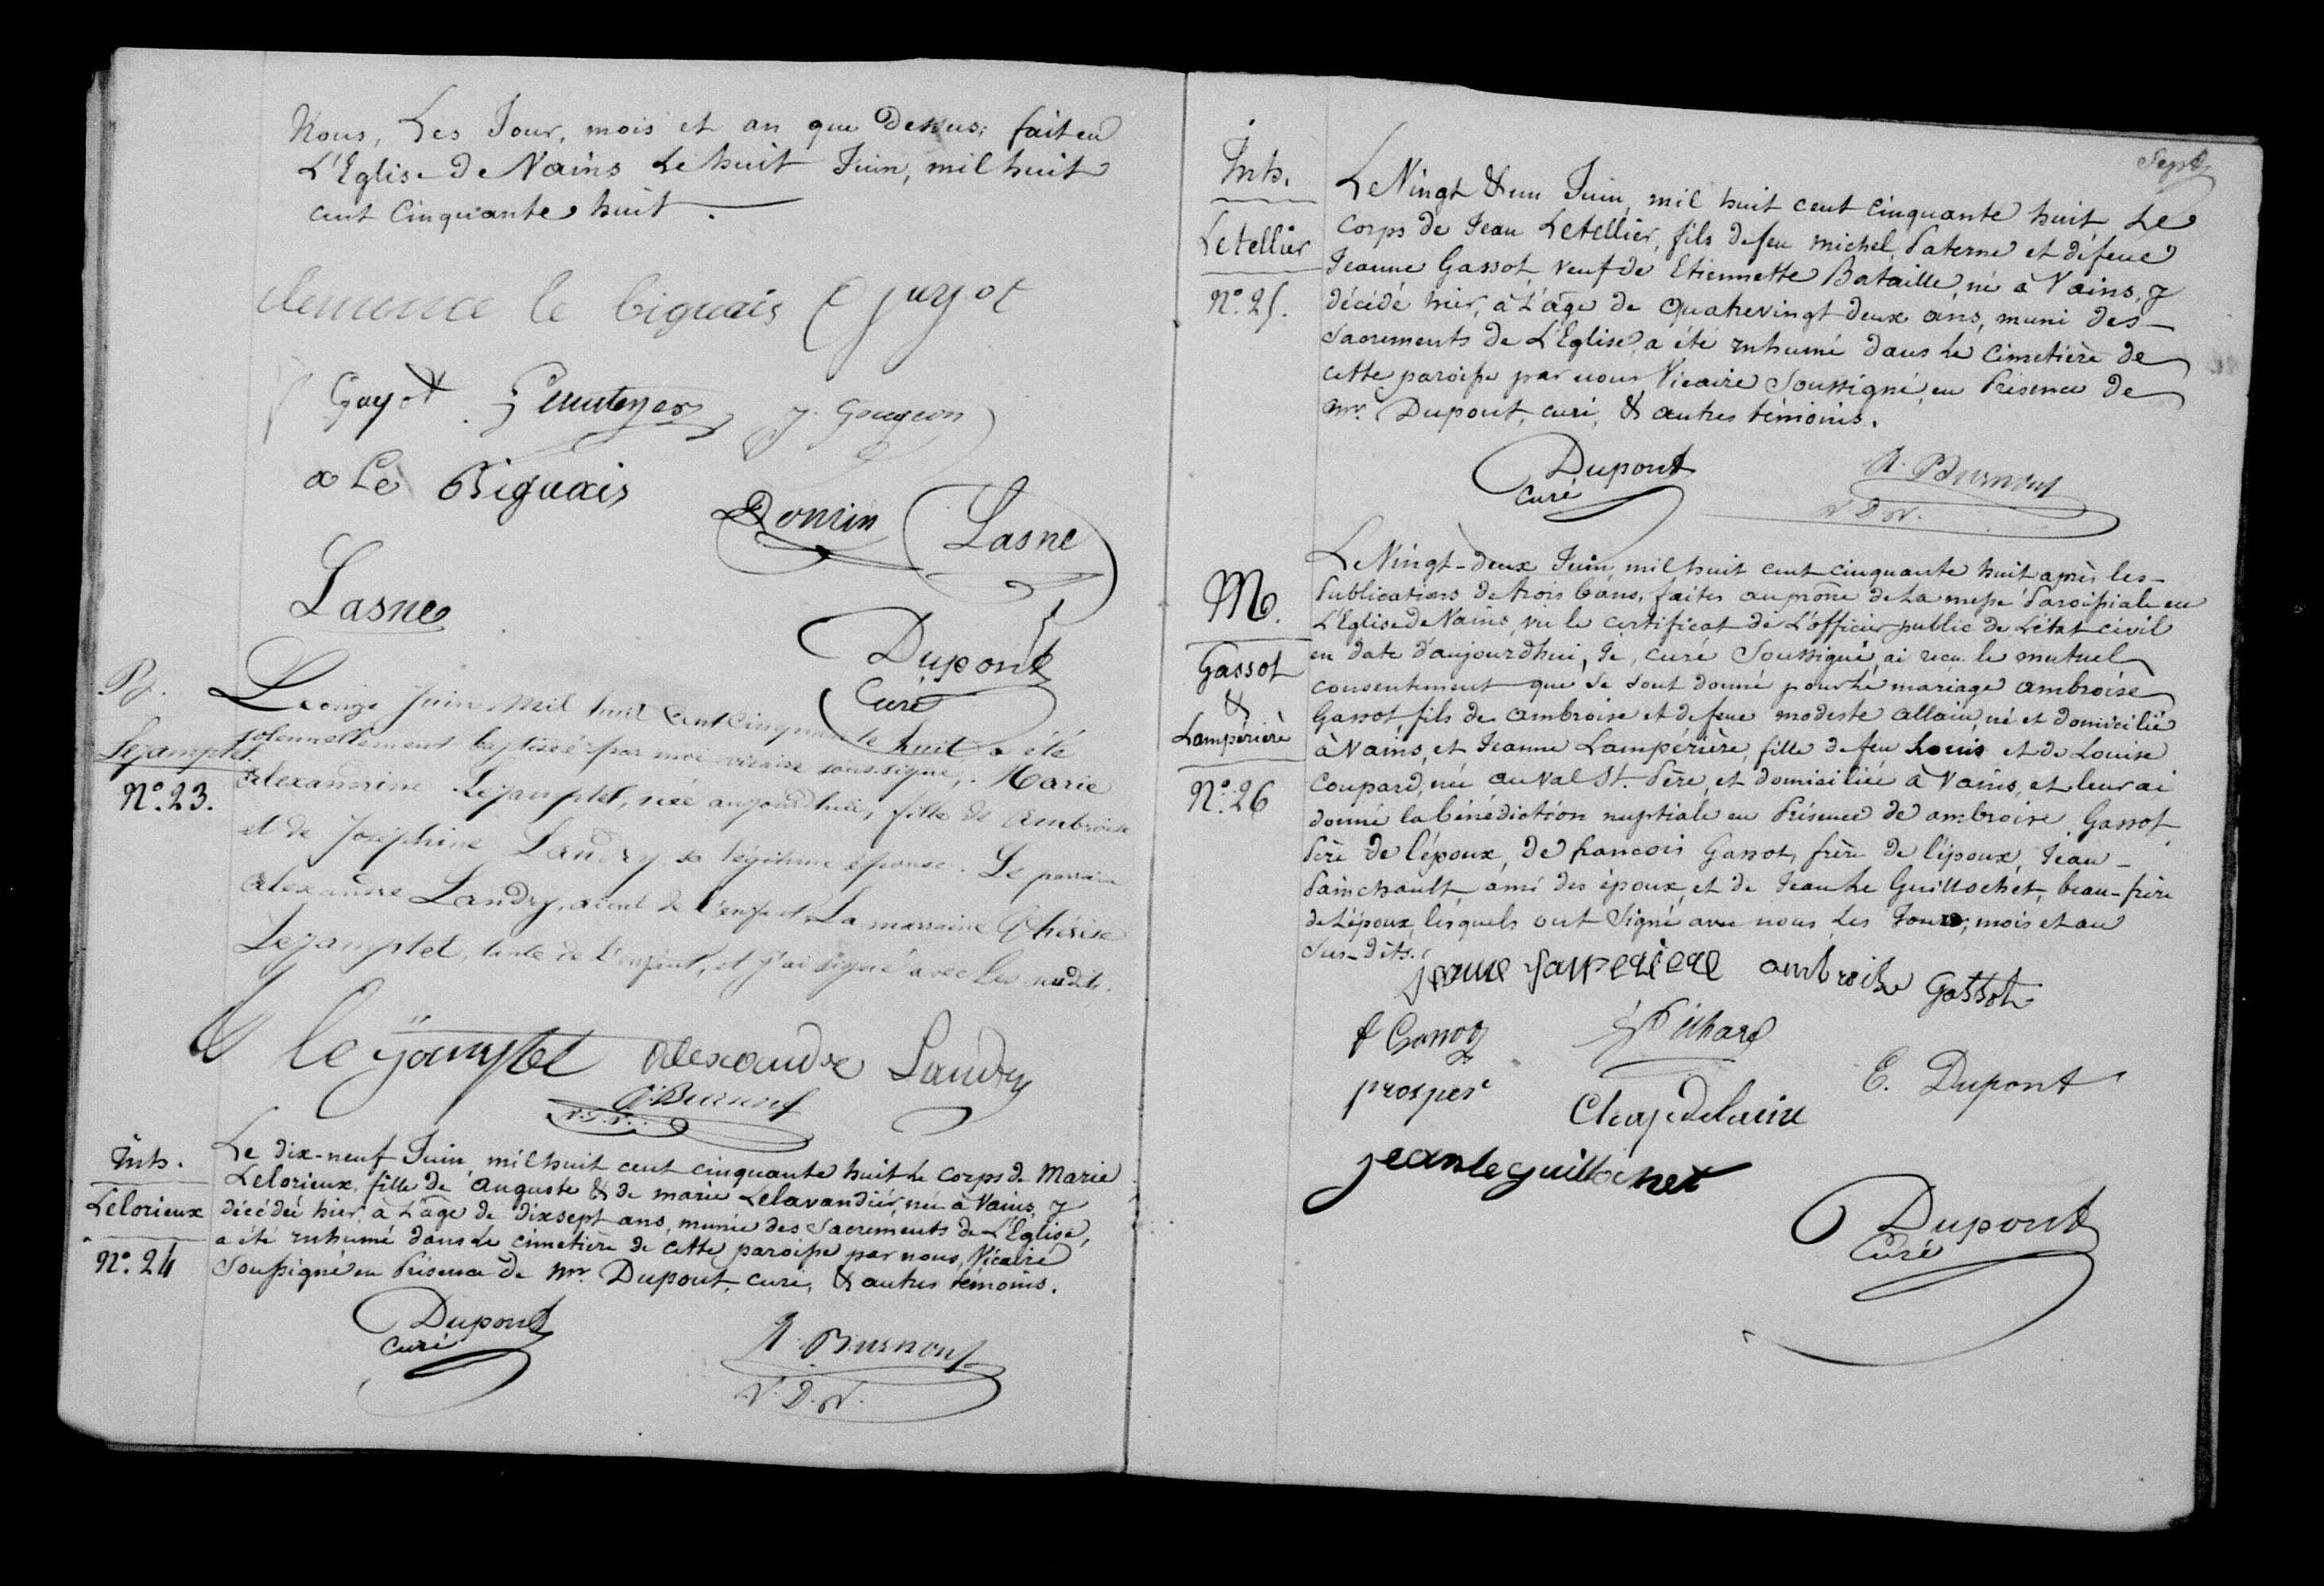 Nous, Les Jour, mois et an que Dessus; fait en
L'Eglise de Vains Le huit Juin, mil huit
cent Cinquante huit.
clemence le biguais C guyot
Guyot J. Gougeon
a Le Biguais
Domin Lasne
Lasne
Dupont
Curé
B.
Lejamptel.
N°. 23.
Le onze Juin mil huit cent cinquante huit, a été
solennellement baptisée par moi vicaire soussigné, Marie
Alexandrine Lejamptel, née aujourd'hui, fille de Ambroise
et de Joséphine Landry sa légitime épouse. Le parrain
Alexandre Landry, aieul de l'enfant, La marraine Thérèse
Lejamptel, tante de l'enfant, et j'ai signé avec les susdits.
le jamptel alexandre Landry
A. Burnouf
V. D. V.
Inh.
Lelorieux
N°. 24
Le dix-neuf Juin mil huit cent cinquante huit Le corps de Marie
Lelorieux, fille de auguste & de marie Lelavandier, née à Vains, y
décédée hier, à L'âge de dix sept ans, munie des Sacrements de L'Eglise,
a été inhumé dans Le cimetière de cette paroisse par nous, Vicaire
Soussigné en Présence de mr. Dupont, curé, & autres témoins.
Dupont
curé
A. Burnouf
V. D. V.
Sept
Inh.
Letellier
N°. 25.
Le Vingt & un Juin, mil huit cent cinquante huit, Le
Corps de Jean Letellier, fils de feu michel Paterne et de feue
Jeanne Gassot, veuf de Etiennette Bataille, né à Vains, y
décédé hier, à L'âge de quatrevingt deux ans, muni des
Sacrements de L'Eglise, a été inhumé dans le cimetière de
cette paroisse par nous Vicaire Soussigné, en Présence de
mr. Dupont, curé, & autres témoins.
Dupont
curé
A. Burnouf
V. D. V.
M.
Gassot
&
Lampérière
N°. 26
Le Vingt-deux Juin mil huit cent cinquante huit après les
Publications de trois bans, faites au prône de La messe Paroissiale en
L'Eglise de Vains, vu le certificat de L'officier public de L'état civil
en date d'aujourdhui, Je, curé Soussigné, ai reçu le mutuel
consentement que se sont donné pour Le mariage ambroise
Gassot, fils de ambroise et de feue modeste allain, né et domicilié
à Vains, et Jeanne Lampérière, fille de feu Louis et de Louise
Coupard, née au Val St. Père, et domiciliée à Vains, et leur ai
donné la bénédiction nuptiale en Présence de ambroise Gassot,
Père de l'époux, de francois Gassot, frère de l'époux, Jean
Painchault, ami des époux, et de Jean Le Guillochet, beau-frère
de L'époux, lesquels ont Signé avec nous Les Jours, mois et an
Sus-dits.
Jeanne Lamperiere ambroise Gassot
f Gassot
prosper Chapdelaine E. Dupont
jean le guillochet
Dupont
Curé